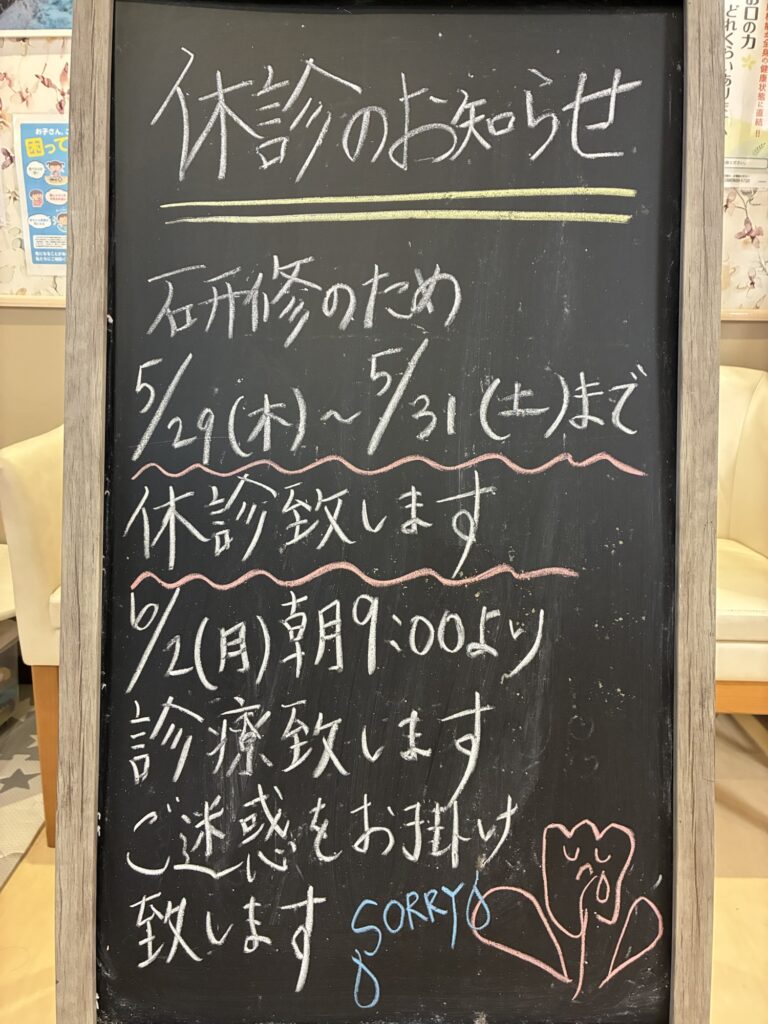 休診のお知らせ
研修のため
5/29(木)～5/31(土)まで
休診致します
6/2(月)朝9:00より
診療致します
ご迷惑をお掛け
致します
SORRY
お子さん、こ
困って
お口の力
どれくらいあり
健康状態に直結!!